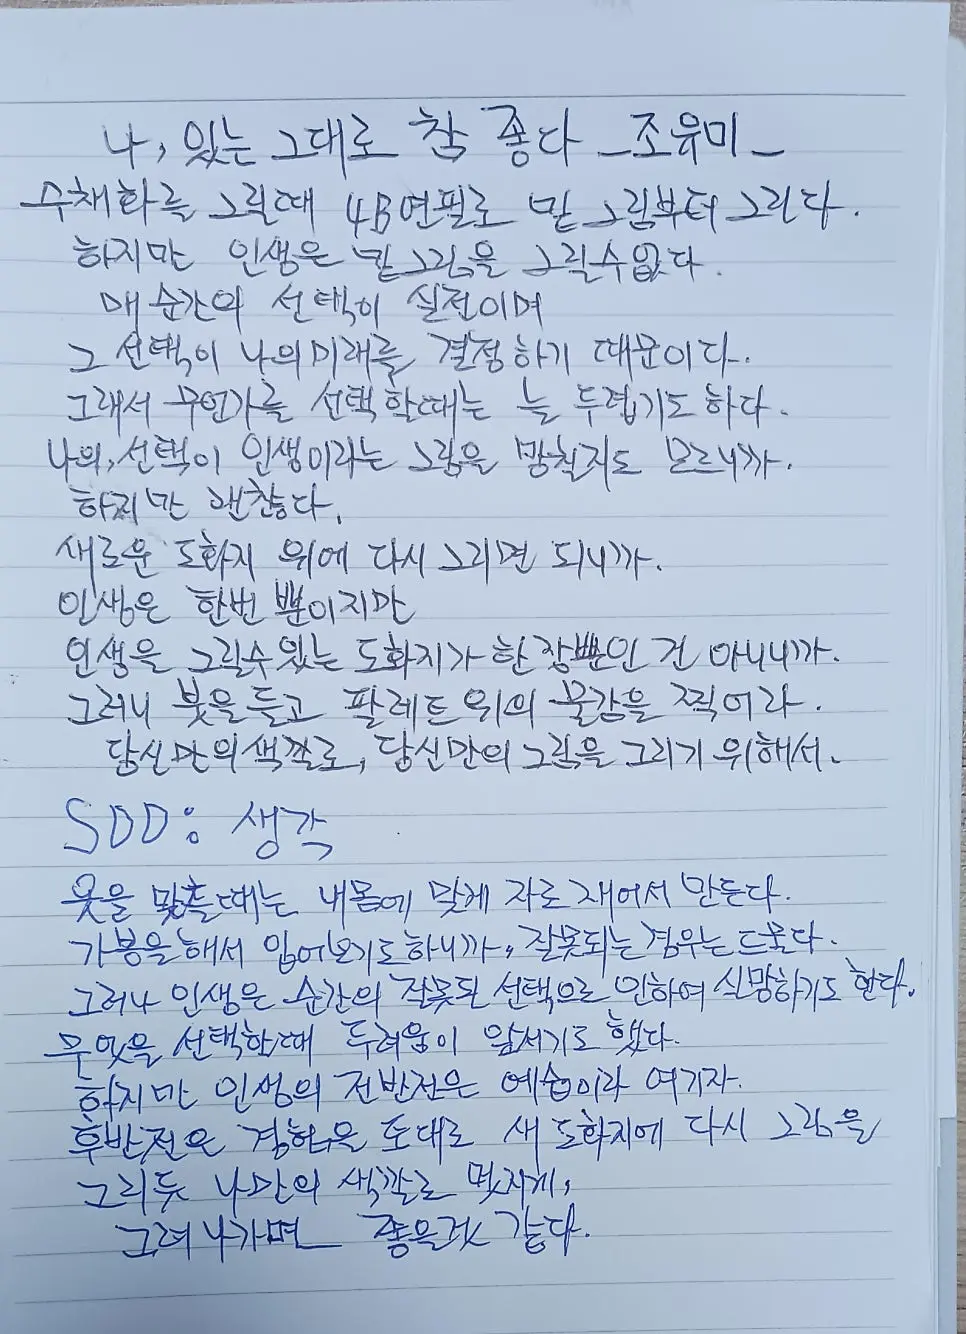 나, 있는 그대로 참 좋다 _조유미_
수채화를 그릴때 4B연필로 밑 그림부터 그린다.
하지만 인생은 밑그림을 그릴수없다.
매 순간의 선택이 실전이며
그 선택이 나의미래를 결정하기 때문이다.
그래서 무언가를 선택할때는 늘 두렵기도 하다.
나의, 선택이 인생이라는 그림을 망칠지도 모르니까.
하지만 괜찮다.
새로운 도화지 위에 다시 그리면 되니까.
인생은 한번 뿐이지만
인생을 그릴수있는 도화지가 한장뿐인 건 아니니까.
그러니 붓을들고 팔레트위의 물감을 찍어라.
당신만의색깔로, 당신만의 그림을 그리기 위해서.
SDD: 생각
옷을 맞출때는 내몸에 맞게 자로 재어서 만든다.
가봉을해서 입어보기도하니까, 잘못되는 경우는드물다.
그러나 인생은 순간의 잘못된 선택으로 인하여 실망하기도 한다.
무엇을 선택할때 두려움이 앞서기도 했다.
하지만 인생의 전반전은 예습이라 여기자.
후반전은 경험을 토대로 새 도화지에 다시 그림을
그리듯 나만의 색깔로 멋지게,
그려나가면 좋을것 같다.